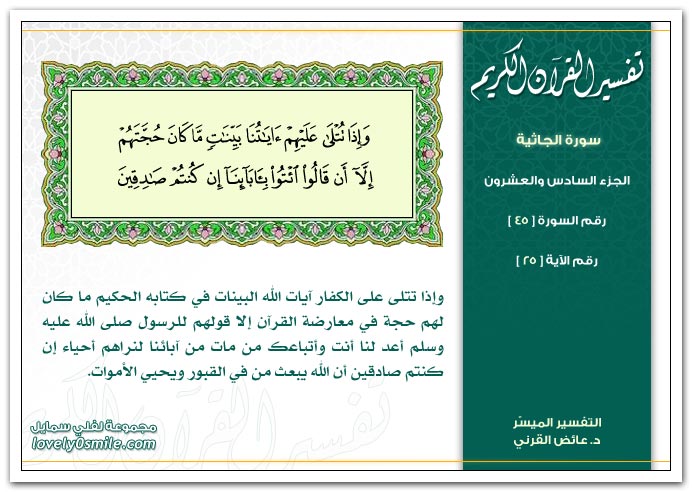 تفسير القرآن الكريم
سورة الجاثية
الجزء السادس والعشرون
رقم السورة [ ٤٥ ]
رقم الآية [ ٢٥ ]
وَإِذَا تُتْلَىٰ عَلَيْهِمْ ءَايَٰتُنَا بَيِّنَٰتٍ مَّا كَانَ حُجَّتَهُمْ
إِلَّآ أَن قَالُوا۟ ٱئْتُوا۟ بِـَٔابَآئِنَآ إِن كُنتُمْ صَٰدِقِينَ
وإذا تتلى على الكفار آيات الله البينات في كتابه الحكيم ما كان
لهم حجة في معارضة القرآن إلا قولهم للرسول صلى الله عليه
وسلم أعد لنا أنت وأتباعك من مات من آبائنا لنراهم أحياء إن
كنتم صادقين أن الله يبعث من في القبور ويحيي الأموات.
التفسير الميسّر
د. عائض القرني
مجموعة لفلي سمايل
lovely0smile.com
تفسير القرآن الكريم